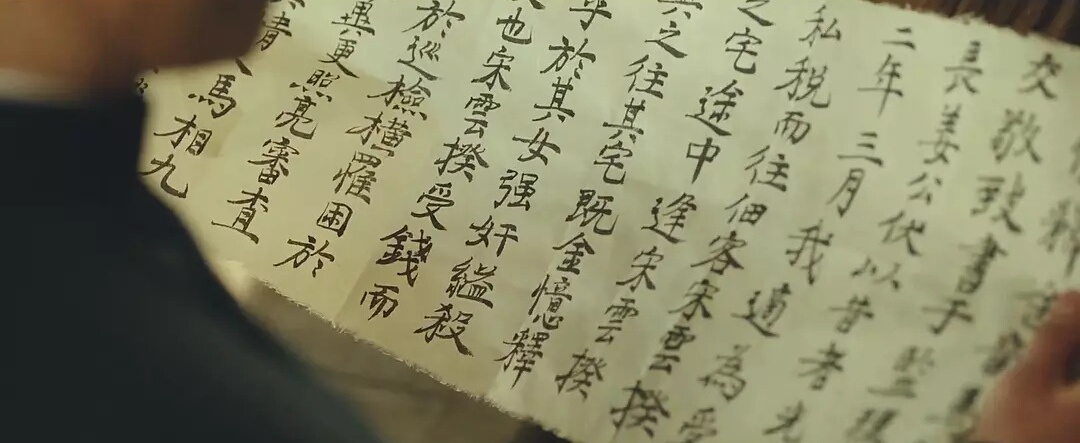 交敬致書于監
長姜公伏以昔者光
二年三月我適為受
私税而往佃客宋雲揆
之宅途中逢宋雲揆
之往其宅既金憶釋
乎於其女强奸繼殺
也宋雲揆受錢而
於巡檢橫罹困於
異更照亮審査
馬相九